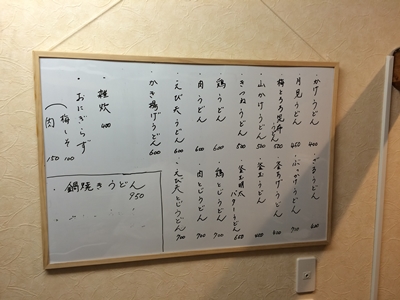 ・かけうどん 400
・月見うどん 450
・山かけうどん 520
・きつねうどん 500
・鶏うどん 600
・肉うどん 600
・えび天うどん 600
・かき揚げうどん 600
・雑炊 400
・おにぎらず
梅しそ 100
肉 150
・ざるうどん
・ぶっかけうどん
・釜あげうどん
・釜玉うどん
・釜玉明太バターうどん 650
・鶏とじうどん 700
・肉とじうどん 700
・えび天とじうどん 700
・鍋焼きうどん
950